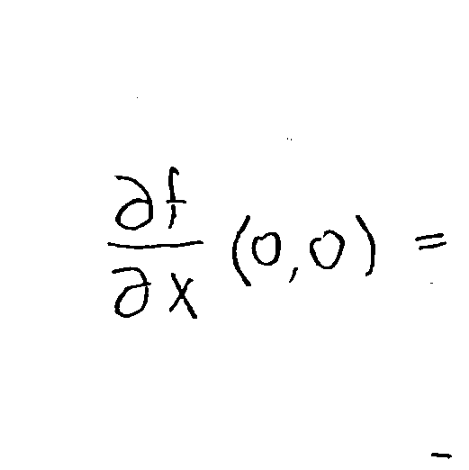 ∂f/∂x (0,0) =